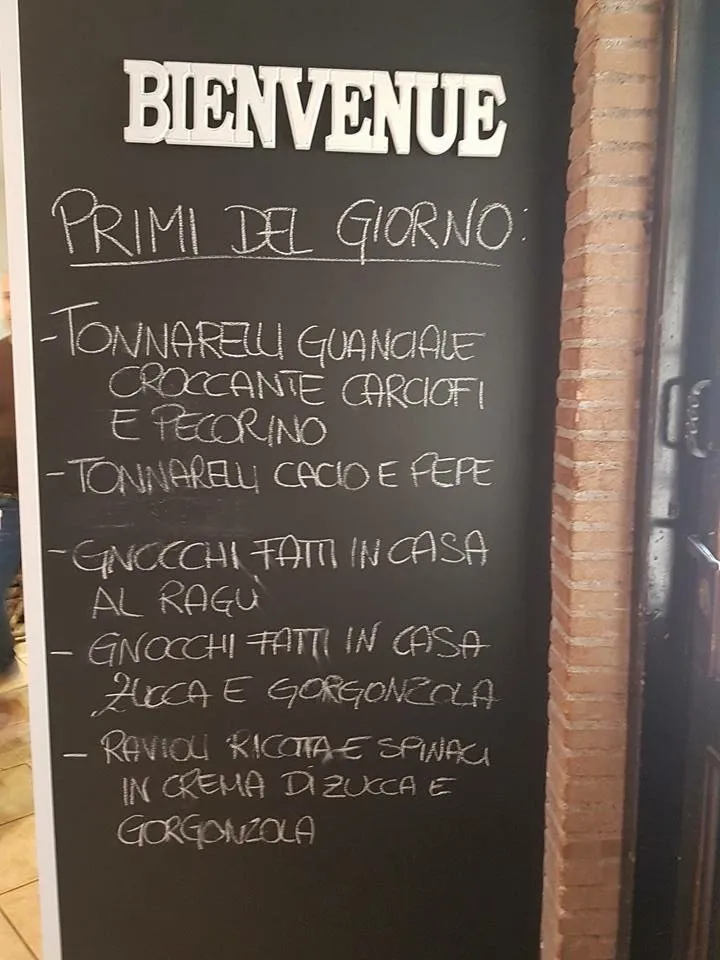 BIENVENUE
PRIMI DEL GIORNO:
- TONNARELLI GUANCIALE
CROCCANTE CARCIOFI
E PECORINO
- TONNARELLI CACIO E PEPE
- GNOCCHI FATTI IN CASA
AL RAGÙ
- GNOCCHI FATTI IN CASA
ZUCCA E GORGONZOLA
- RAVIOLI RICOTTA E SPINACI
IN CREMA DI ZUCCA E
GORGONZOLA